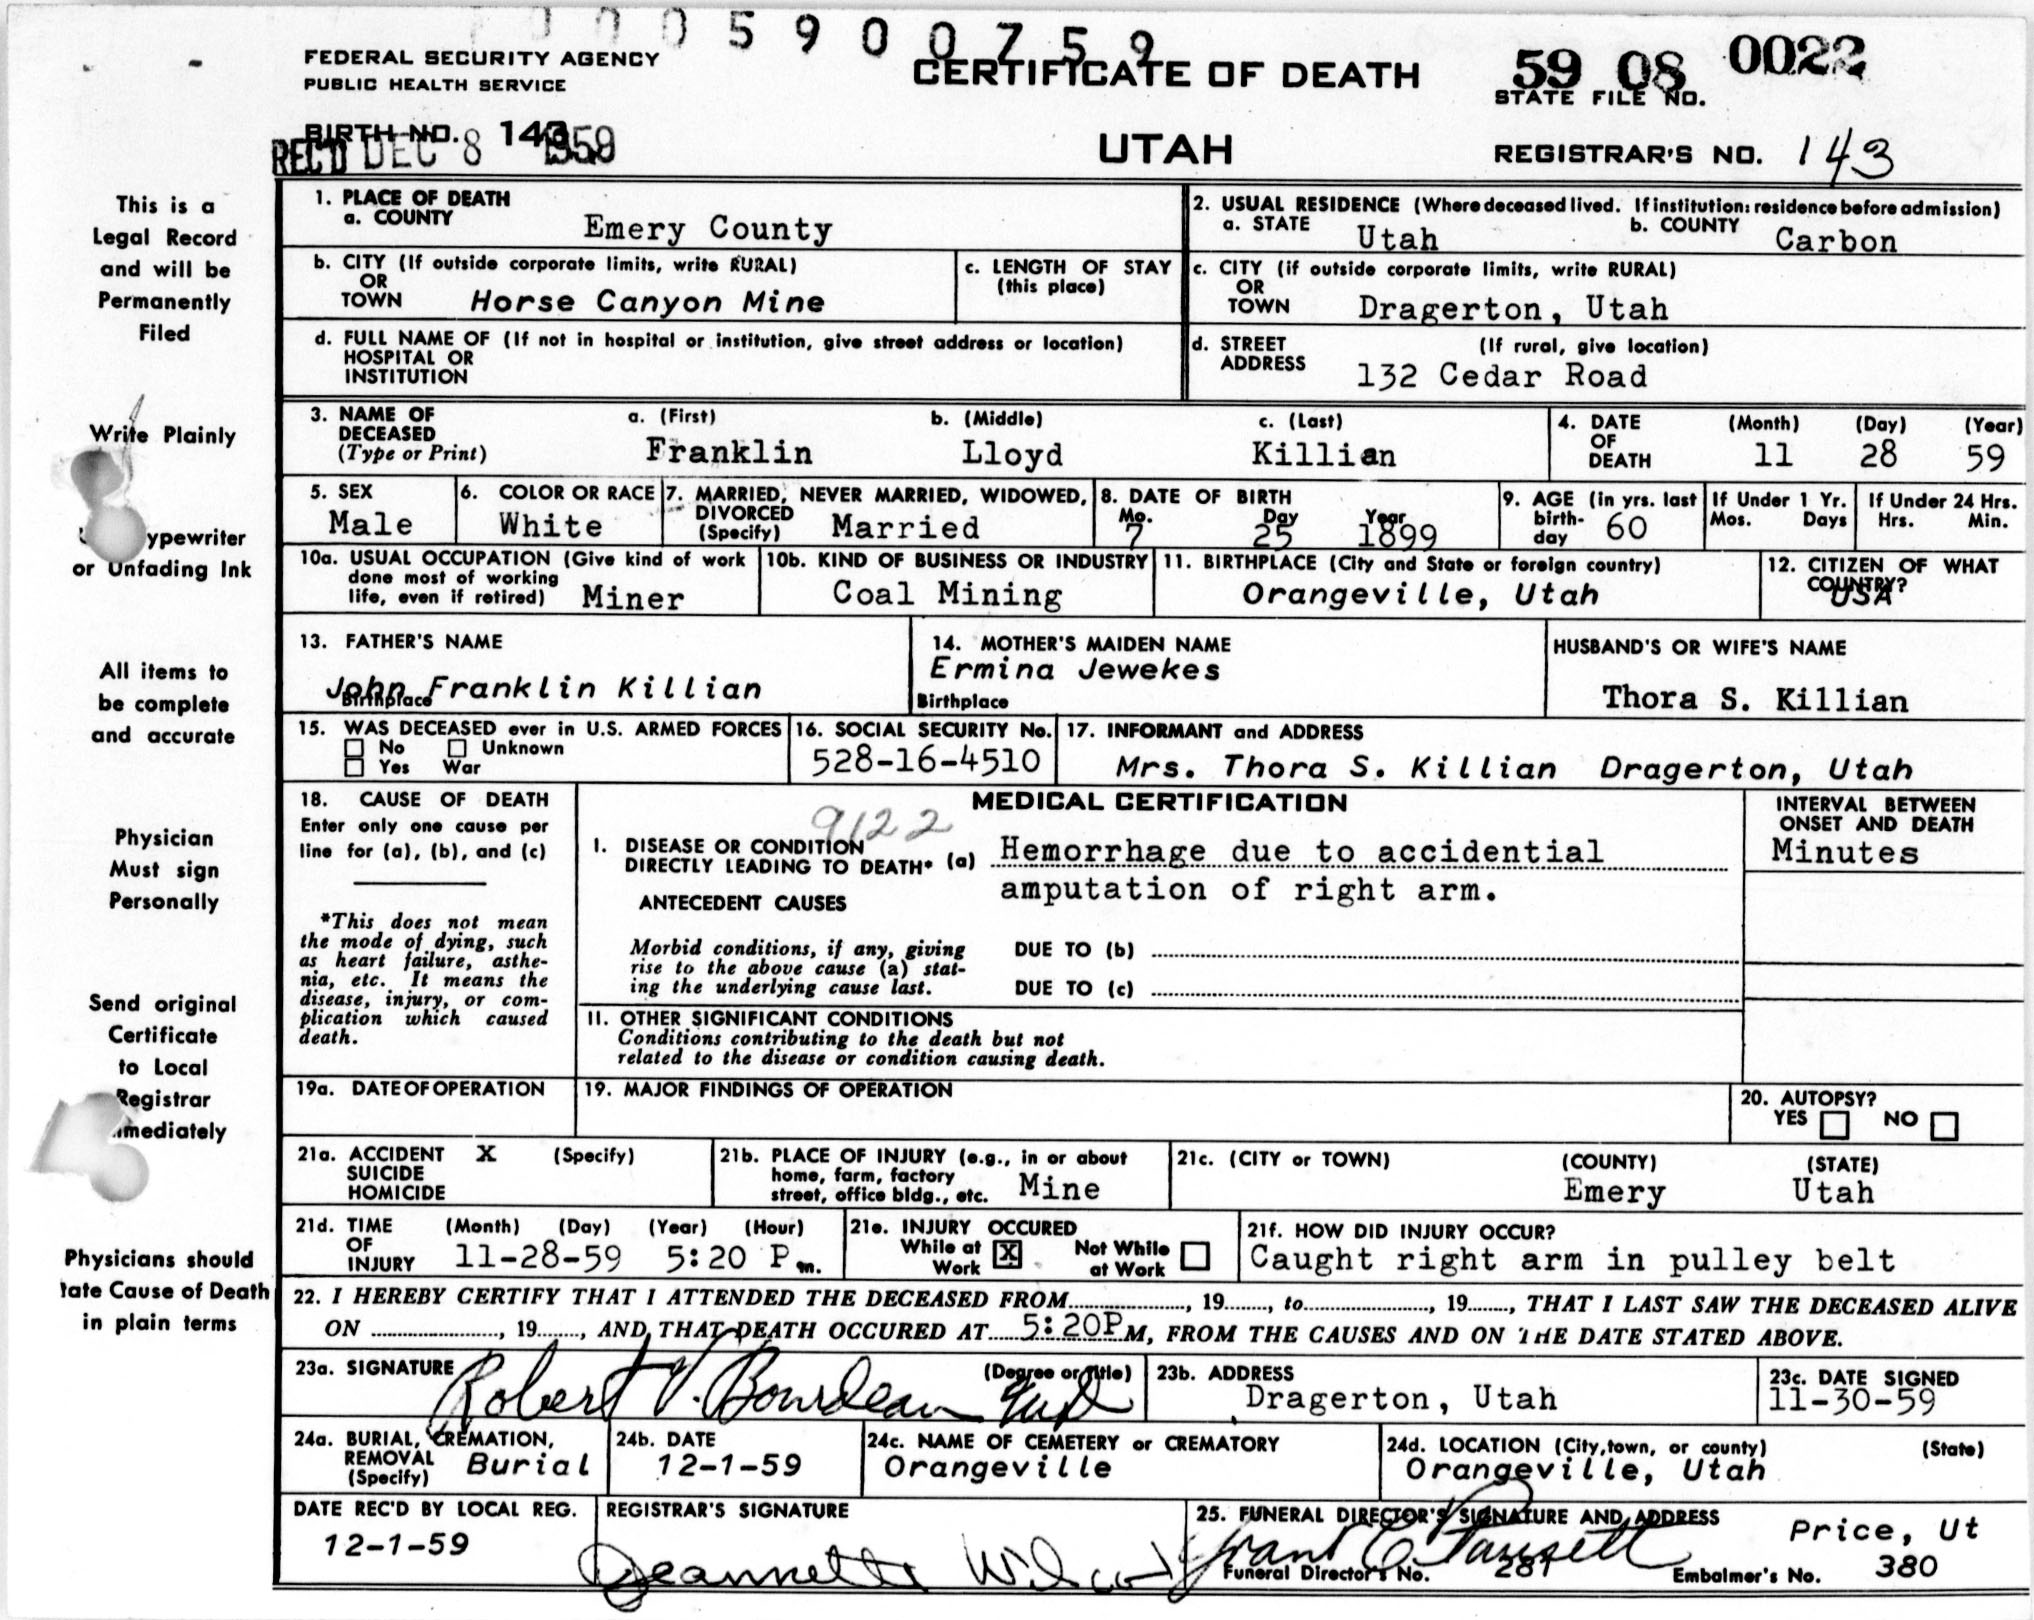 0 0 0 5 9 0 0 7 5 9
FEDERAL SECURITY AGENCY
PUBLIC HEALTH SERVICE
CERTIFICATE OF DEATH
59 08 0022
STATE FILE NO.
BIRTH NO. 143
REC'D DEC 8 1959
UTAH
REGISTRAR'S NO. 143
This is a
Legal Record
and will be
Permanently
Filed
Write Plainly
ypewriter
or Unfading Ink
All items to
be complete
and accurate
Physician
Must sign
Personally
Send original
Certificate
to Local
Registrar
mmediately
Physicians should
tate Cause of Death
in plain terms
1. PLACE OF DEATH
a. COUNTY Emery County
2. USUAL RESIDENCE (Where deceased lived. If institution: residence before admission)
a. STATE Utah b. COUNTY Carbon
b. CITY (If outside corporate limits, write RURAL)
OR
TOWN Horse Canyon Mine
c. LENGTH OF STAY
(this place)
c. CITY (if outside corporate limits, write RURAL)
OR
TOWN Dragerton, Utah
d. FULL NAME OF (If not in hospital or institution, give street address or location)
HOSPITAL OR
INSTITUTION
d. STREET (If rural, give location)
ADDRESS 132 Cedar Road
3. NAME OF DECEASED (Type or Print)
a. (First) b. (Middle) c. (Last)
Franklin Lloyd Killian
4. DATE OF DEATH (Month) (Day) (Year)
11 28 59
5. SEX
Male
6. COLOR OR RACE
White
7. MARRIED, NEVER MARRIED, WIDOWED,
DIVORCED
(Specify) Married
8. DATE OF BIRTH
Mo. Day Year
7 25 1899
9. AGE (in yrs. last
birth-
day 60
If Under 1 Yr.
Mos. Days
If Under 24 Hrs.
Hrs. Min.
10a. USUAL OCCUPATION (Give kind of work
done most of working
life, even if retired) Miner
10b. KIND OF BUSINESS OR INDUSTRY
Coal Mining
11. BIRTHPLACE (City and State or foreign country)
Orangeville, Utah
12. CITIZEN OF WHAT
COUNTRY?
USA
13. FATHER'S NAME
John Franklin Killian
Birthplace
14. MOTHER'S MAIDEN NAME
Ermina Jewekes
Birthplace
HUSBAND'S OR WIFE'S NAME
Thora S. Killian
15. WAS DECEASED ever in U.S. ARMED FORCES
No Unknown
Yes War
16. SOCIAL SECURITY No.
528-16-4510
17. INFORMANT and ADDRESS
Mrs. Thora S. Killian Dragerton, Utah
18. CAUSE OF DEATH
Enter only one cause per
line for (a), (b), and (c)
*This does not mean
the mode of dying, such
as heart failure, asthe-
nia, etc. It means the
disease, injury, or com-
plication which caused
death.
MEDICAL CERTIFICATION
9122
I. DISEASE OR CONDITION
DIRECTLY LEADING TO DEATH* (a) Hemorrhage due to accidential
amputation of right arm.
ANTECEDENT CAUSES
Morbid conditions, if any, giving
rise to the above cause (a) stat-
ing the underlying cause last.
DUE TO (b)
DUE TO (c)
II. OTHER SIGNIFICANT CONDITIONS
Conditions contributing to the death but not
related to the disease or condition causing death.
INTERVAL BETWEEN
ONSET AND DEATH
Minutes
19a. DATE OF OPERATION
19. MAJOR FINDINGS OF OPERATION
20. AUTOPSY?
YES NO
21a. ACCIDENT X (Specify)
SUICIDE
HOMICIDE
21b. PLACE OF INJURY (e.g., in or about
home, farm, factory
street, office bldg., etc. Mine
21c. (CITY or TOWN) (COUNTY) (STATE)
Emery Utah
21d. TIME OF INJURY (Month) (Day) (Year) (Hour)
11-28-59 5:20 P m.
21e. INJURY OCCURED
While at Work X Not While at Work
21f. HOW DID INJURY OCCUR?
Caught right arm in pulley belt
22. I HEREBY CERTIFY THAT I ATTENDED THE DECEASED FROM, 19, to, 19, THAT I LAST SAW THE DECEASED ALIVE
ON, 19, AND THAT DEATH OCCURED AT 5:20P M, FROM THE CAUSES AND ON THE DATE STATED ABOVE.
23a. SIGNATURE (Degree or title)
Robert V. Bourdeau
23b. ADDRESS
Dragerton, Utah
23c. DATE SIGNED
11-30-59
24a. BURIAL, CREMATION,
REMOVAL
(Specify) Burial
24b. DATE
12-1-59
24c. NAME OF CEMETERY or CREMATORY
Orangeville
24d. LOCATION (City, town, or county) (State)
Orangeville, Utah
DATE REC'D BY LOCAL REG.
12-1-59
REGISTRAR'S SIGNATURE
Jeannette
25. FUNERAL DIRECTOR'S SIGNATURE AND ADDRESS
Price, Ut
Grant C
Funeral Director's No. 281 Embalmer's No. 380